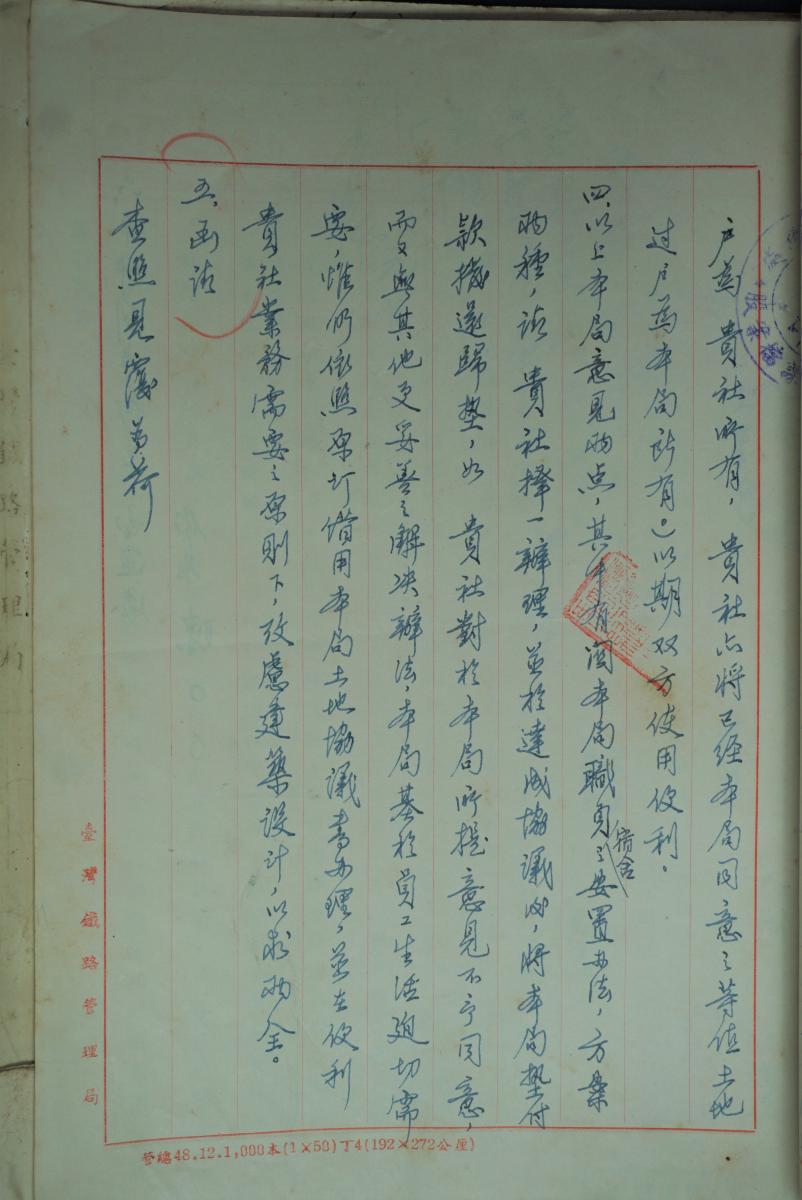 戶為　貴社所有，　貴社亦將已經本局同意之等值土地
过户為本局所有。）以期双方使用便利。
四、以上本局意見两点，其中有関本局職員宿舍之安置办法，方案
两種，請　貴社擇一辦理，並於達成協議後，將本局墊付
款撥還歸墊，如　貴社對於本局所提意見不予同意，
而又無其他更妥善之解决辦法，本局基於員工生活迫切需
要，惟仍依照原订借用本局土地協議書办理，並在便利
貴社業務需要之原則下，攷慮建築設計，以求两全。
五、函請
查照見復為荷
臺灣鐵路管理局
管總48.12.1,000本(1×50)丁4(192×272公厘)